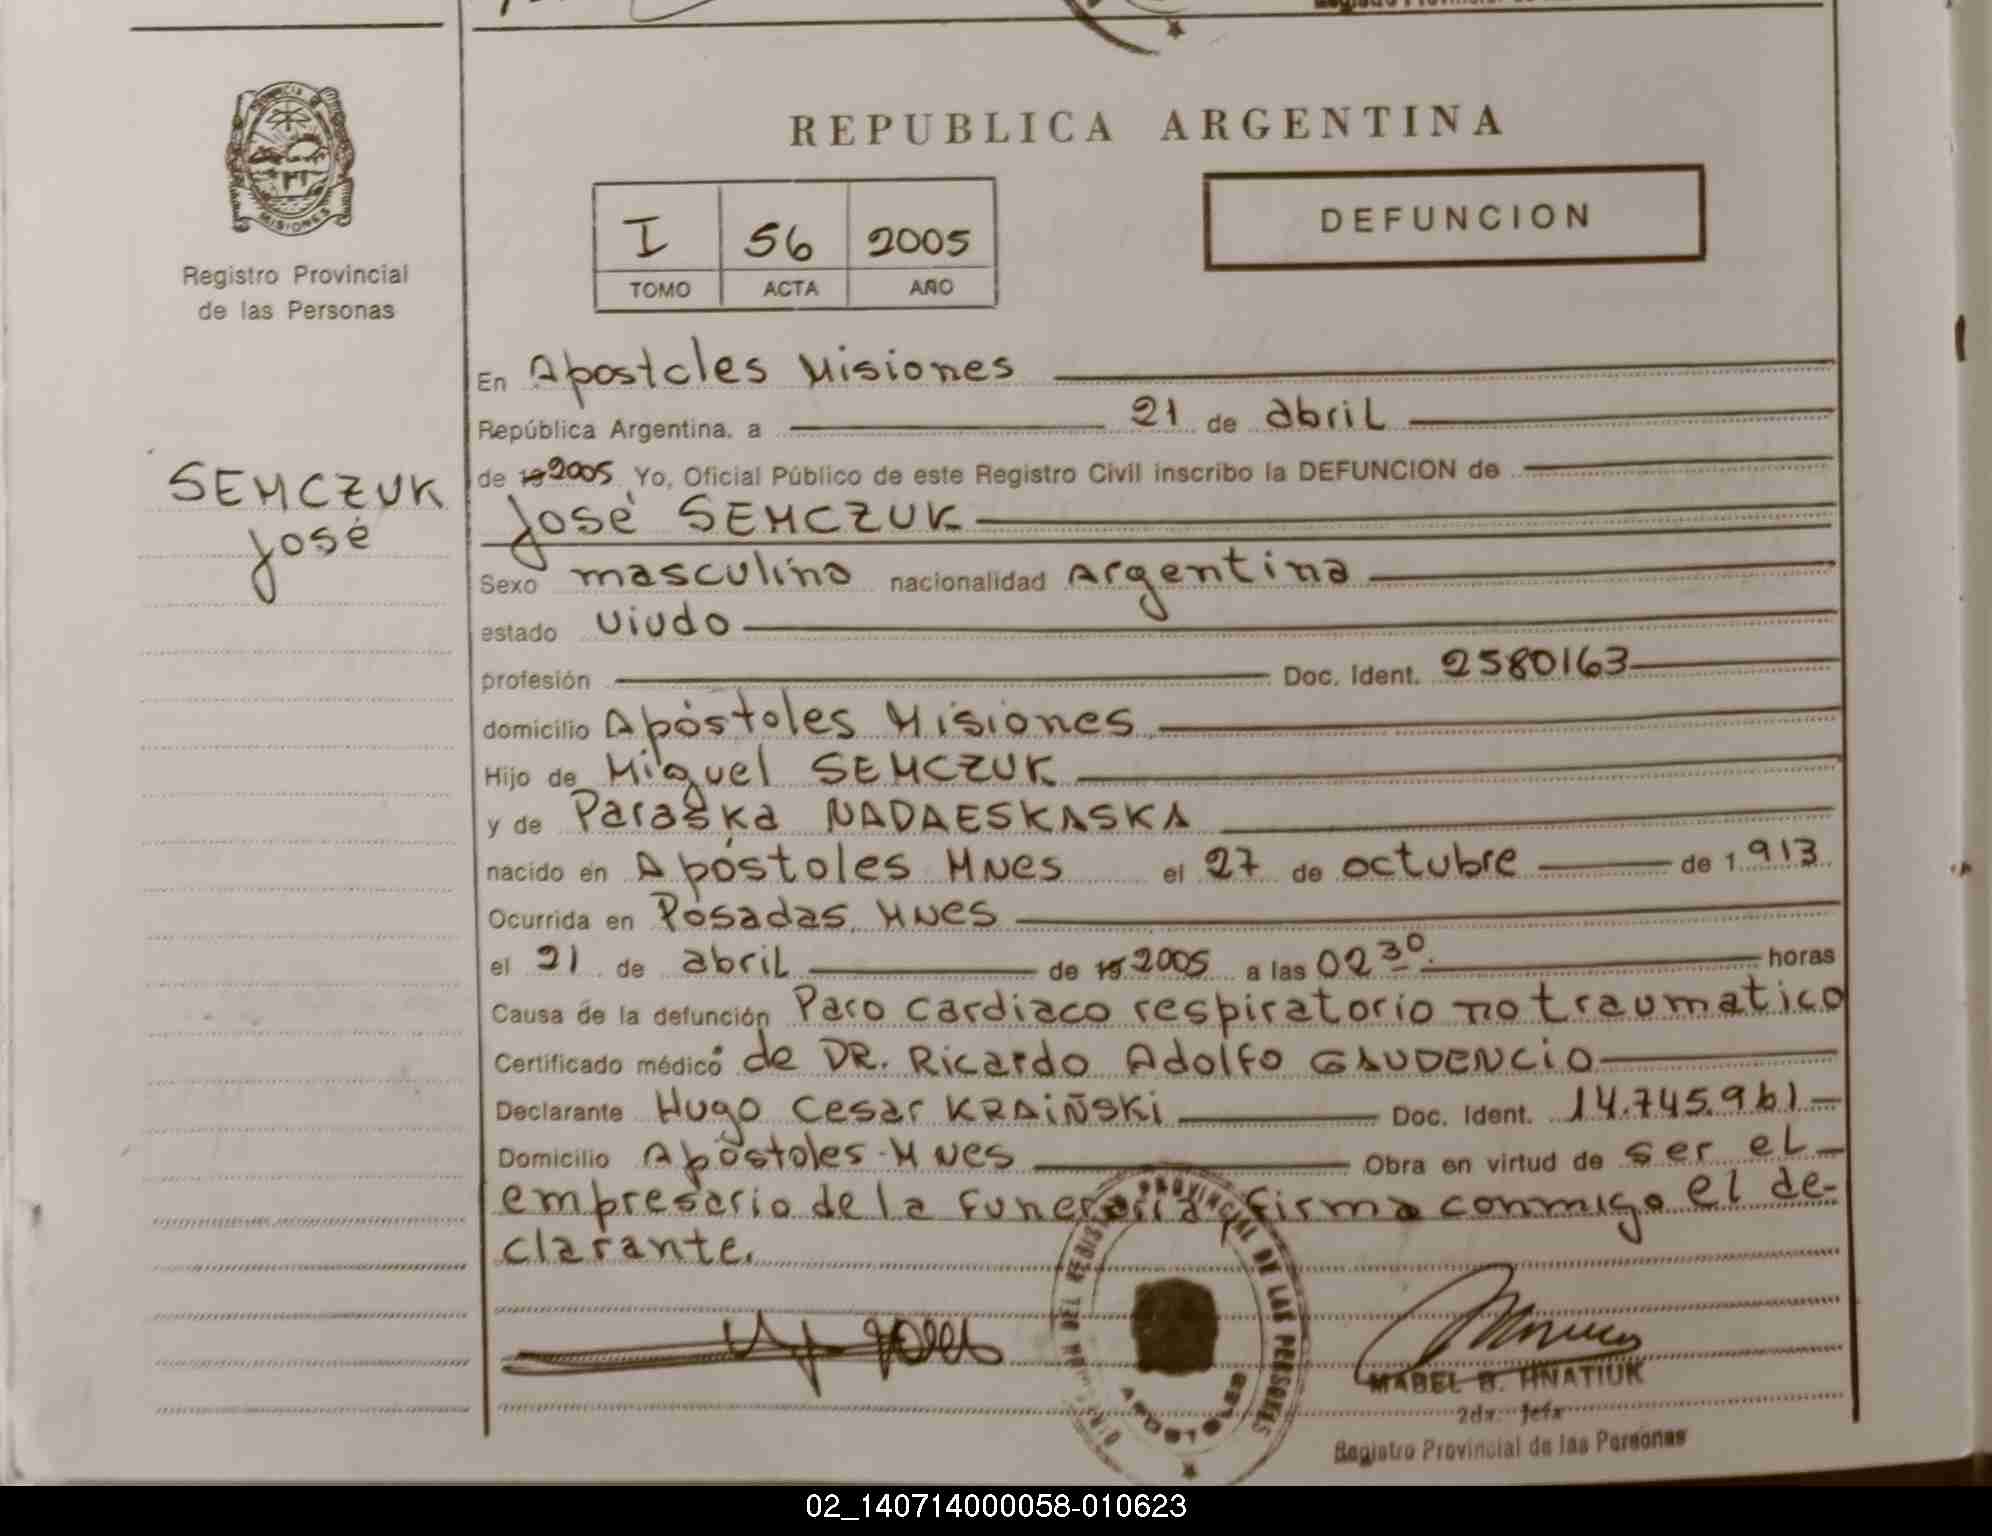 REPUBLICA ARGENTINA
PROVINCIA D MISIONES
Registro Provincial
de las Personas
I 56 2005
TOMO ACTA AÑO
DEFUNCION
SEMCZUK
José
En Apostoles Misiones
República Argentina, a 21 de abril
de 19 2005 Yo, Oficial Público de este Registro Civil inscribo la DEFUNCION de
José SEMCZUK
Sexo masculino nacionalidad Argentina
estado viudo
profesión Doc. Ident. 2580163
domicilio Apóstoles Misiones
Hijo de Miguel SEMCZUK
y de Paraska NADAESKASKA
nacido en Apóstoles MNes el 27 de octubre de 1 913
Ocurrida en Posadas, MNes
el 21 de abril de 19 2005 a las 02 30 horas
Causa de la defunción Paro cardiaco respiratorio no traumatico
Certificado médico de DR. Ricardo Adolfo GAUDENCIO
Declarante Hugo Cesar KRAIÑSKI Doc. Ident. 14.745.961
Domicilio Apóstoles-MNes Obra en virtud de ser el
empresario de la funeraria, firma conmigo el de-
clarante.
PROVINCIAL DE LAS PERSONAS
APOSTOLES
MABEL B. HNATIUK
2da. Jefa
Registro Provincial de las Personas
02_140714000058-010623